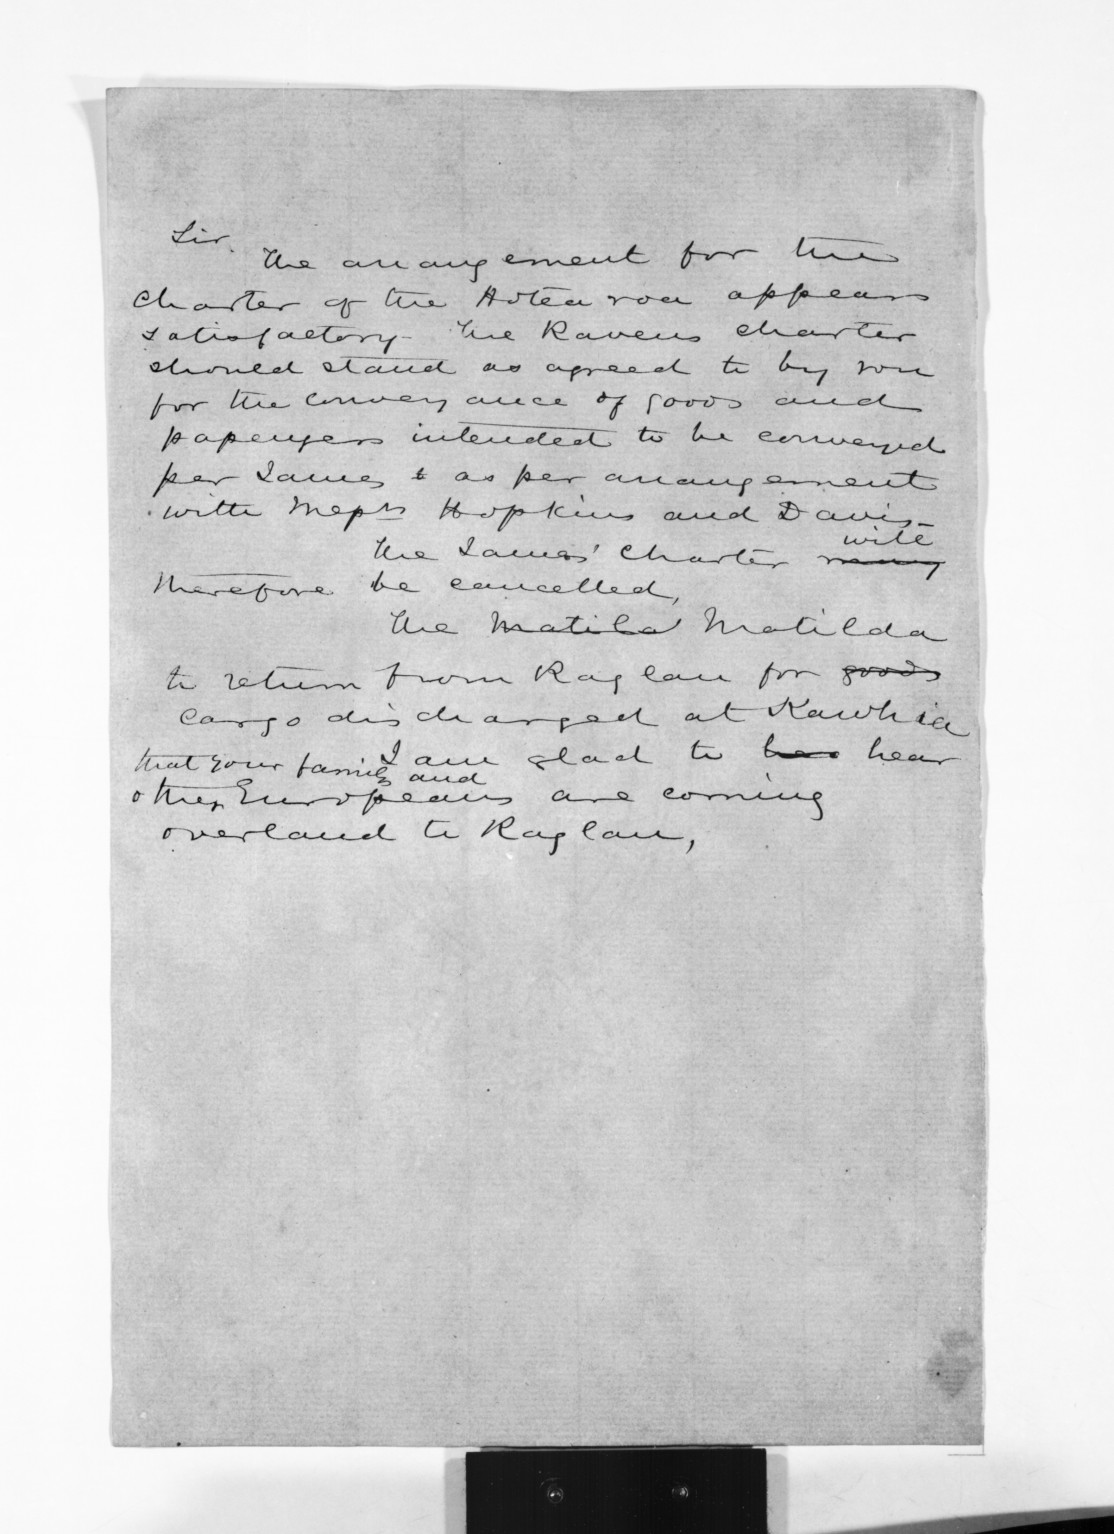 Sir.
The arrangement for the
charter of the Aotea roa appears
satisfactory - The Ravens charter
should stand as agreed to by you
for the conveyance of goods and
passengers intended to be conveyed
per James & as per arrangement
with Messrs Hopkins and Davis -
The James' charter may will
therefore be cancelled,
The Matild Matilda
to return from Raglan for goods
cargo discharged at Kawhia
I am glad to hea hear
that your family and
other Europeans are coming
overland to Raglan,